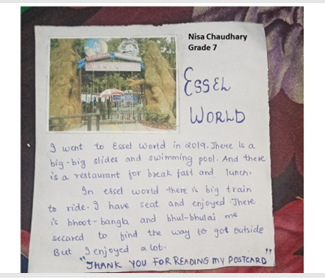 Nisa Chaudhary
Grade 7
ESSEL
WORLD
I went to Essel World in 2019. There is a
big-big slides and swimming pool. And there
is a restaurant for break fast and lunch.
In essel world there is big train
to ride. I have seat and enjoyed There
is bhoot-bangla and bhul-bhulai me
scared to find the way to got outside
But I enjoyed a lot.
"THANK YOU FOR READING MY POSTCARD"